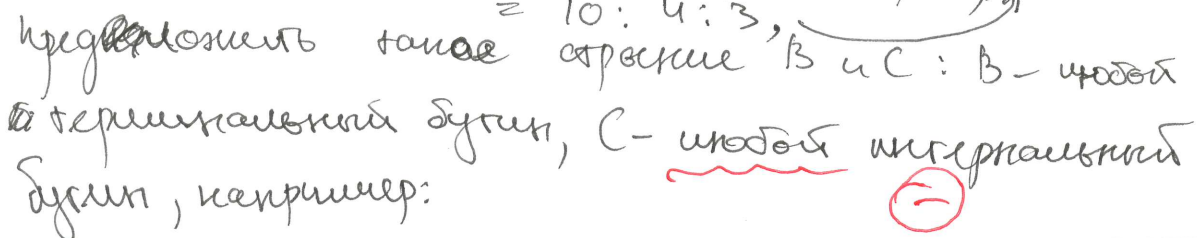 = 10 : 4 : 3,
предложить такое строение В и С : В – любой
терминальный бутин, С – любой интернальный
бутин, например: